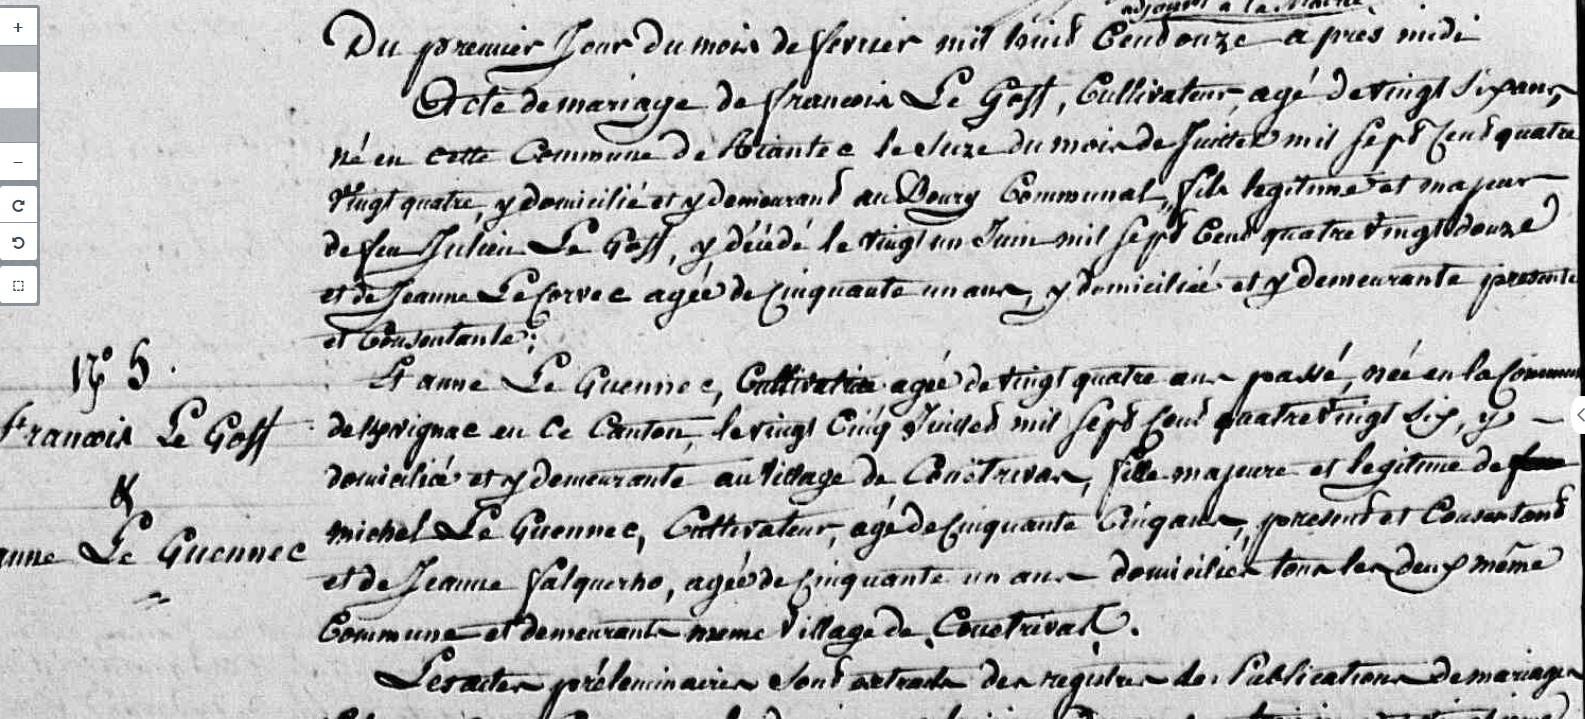 adjoint à la Mairie
Du premier Jour du mois de fevrier mil huit Cent douze a pres midi
Acte de mariage de francois Le Goff, Cultivateur, agé de vingt Six ans,
né en cette Commune de Riantec le seize du mois de Juillet mil sept Cent quatre
Vingt quatre, y domicilié et y demeurant au Bourg Communal, fils legitime et majeur
de feu Julien Le Goff, y décédé le vingt un Juin mil sept Cent quatre Vingt douze
et de Jeanne Le Corvec agée de Cinquante un ans, y domiciliée et y demeurante presente
et Consentante;
N° 5.
Et anne Le Guennec, Cultivatrice agée de vingt quatre ans passé, née en la Commune
francois Le Goff
de en Ce Canton, le vingt Cinq Juillet mil sept Cent quatre Vingt Six, y
domiciliée et y demeurante au Village de fille majeure et legitime de
&
michel Le Guennec, Cultivateur, agé de Cinquante Cinq ans, present et Consentant
anne Le Guennec
et de Jeanne Falquerho, agée de Cinquante un ans domiciliés tous les deux même
Commune et demeurants meme Village de
Les actes préleminaires sont extraits des registres des Publications de mariages